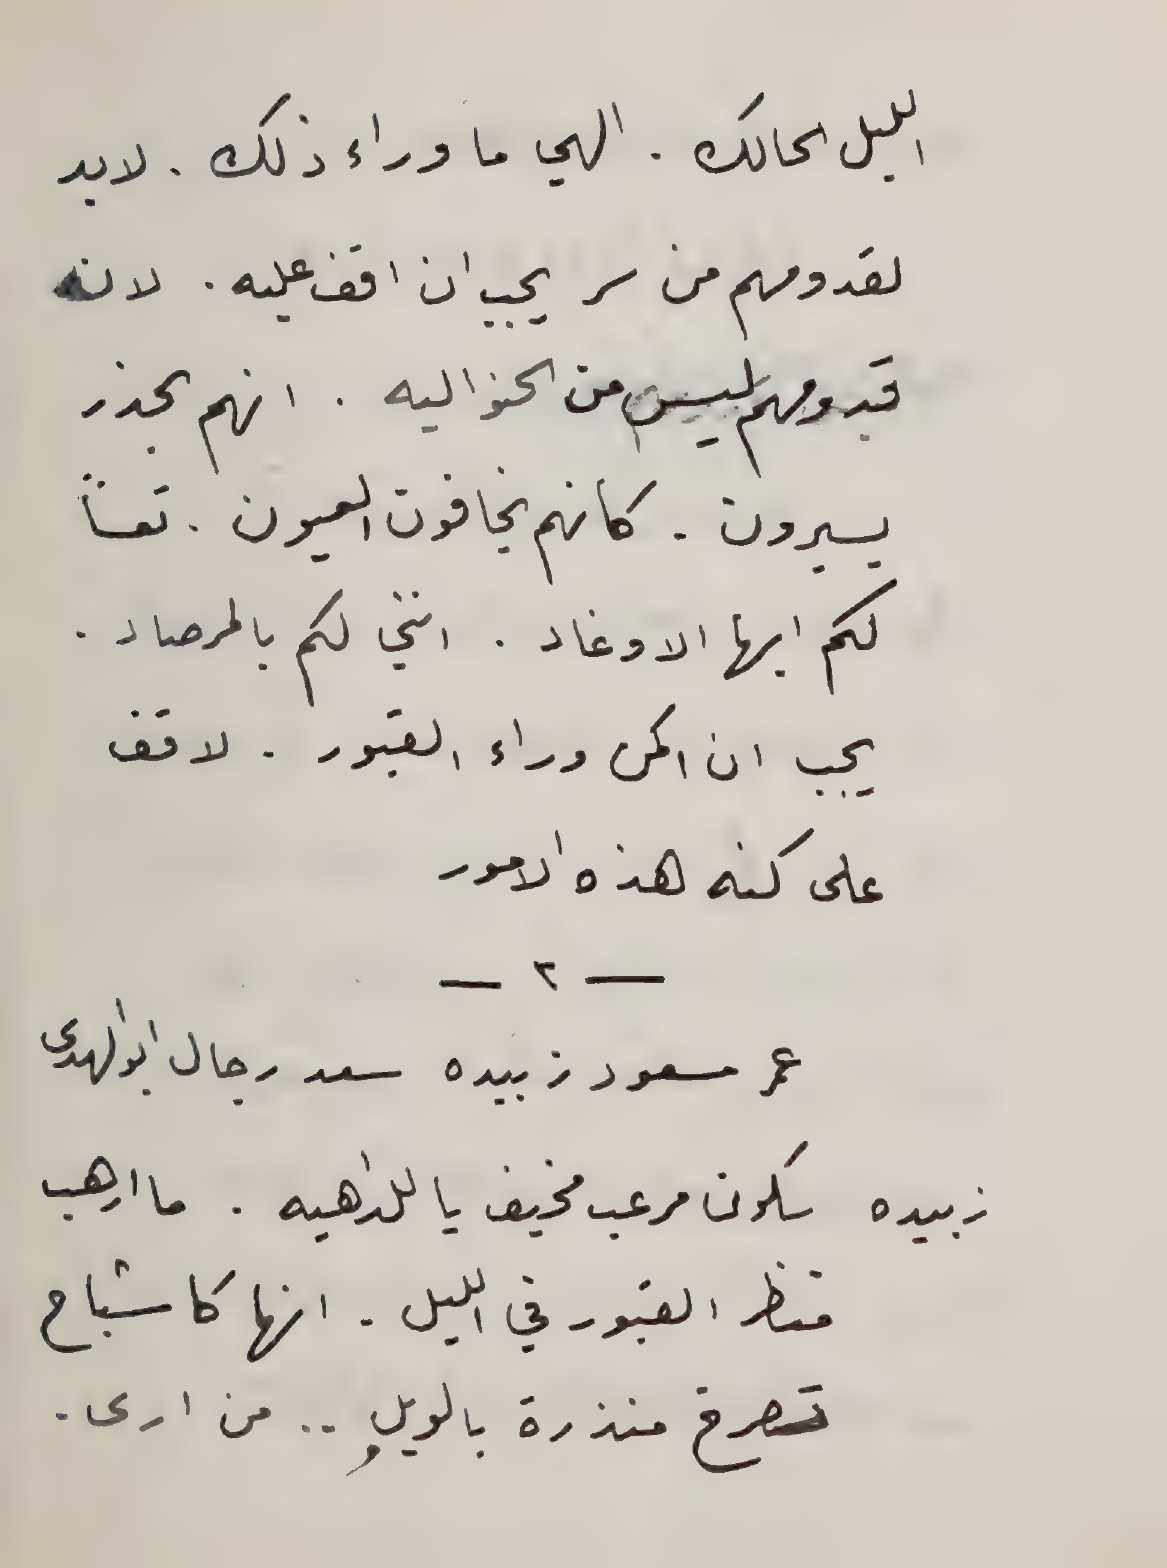 الليل الحالك . الهي ما وراء ذلك . لابد
لقدومهم من سر يجب ان اقف عليه . لانه
قدومهم ليس من الحواليه . انهم بحذر
يسيرون . كانهم يخافون العيون . تعساً
لكم ايها الاوغاد . انني لكم بالمرصاد .
يجب ان اكمن وراء القبور . لاقف
على كنه هذه الامور
— ٢ —
عمر مسعود زبيده سعد رجال ابو الهدى
زبيده سكون مرعب مخيف يا للداهيه . ما ارهب
منظر القبور في الليل . انها كاشباح
تصرخ منذرة بالويل .. من ارى .